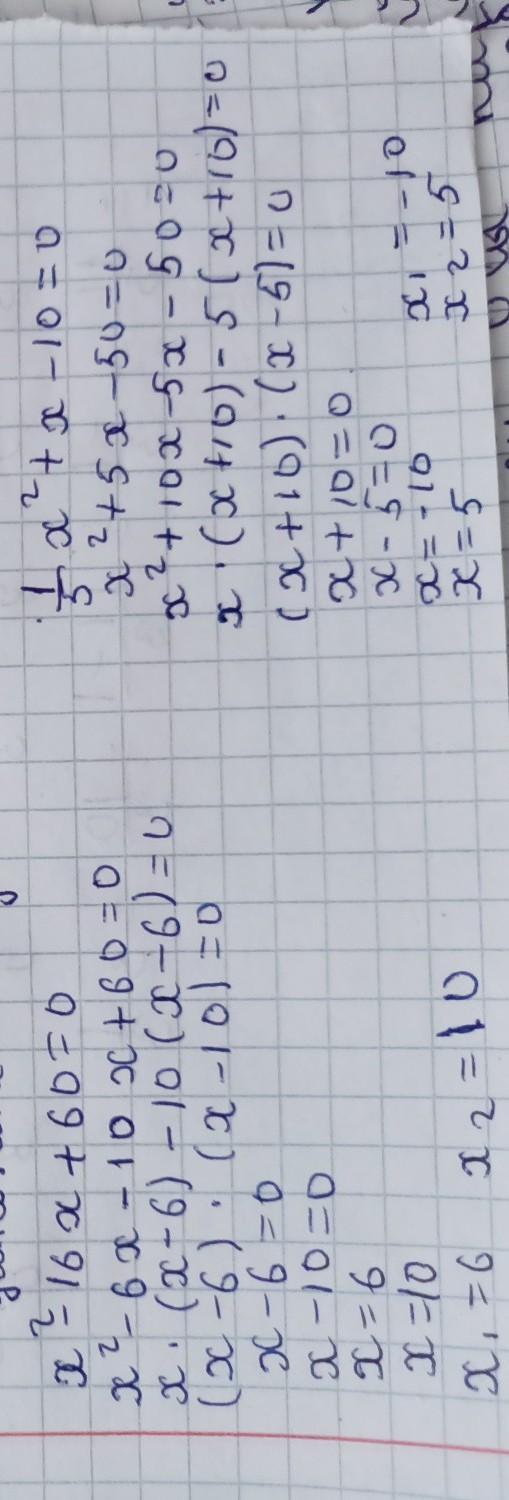 x² = 16x + 60 = 0
x² - 6x - 10x + 60 = 0
x · (x - 6) - 10(x - 6) = 0
(x - 6) · (x - 10) = 0
x - 6 = 0
x - 10 = 0
x = 6
x = 10
x₁ = 6 x₂ = 10
1/5 x² + x - 10 = 0
x² + 5x - 50 = 0
x² + 10x - 5x - 50 = 0
x · (x + 10) - 5(x + 10) = 0
(x + 10) · (x - 5) = 0
x + 10 = 0
x - 5 = 0
x = -10
x = 5
x₁ = -10
x₂ = 5